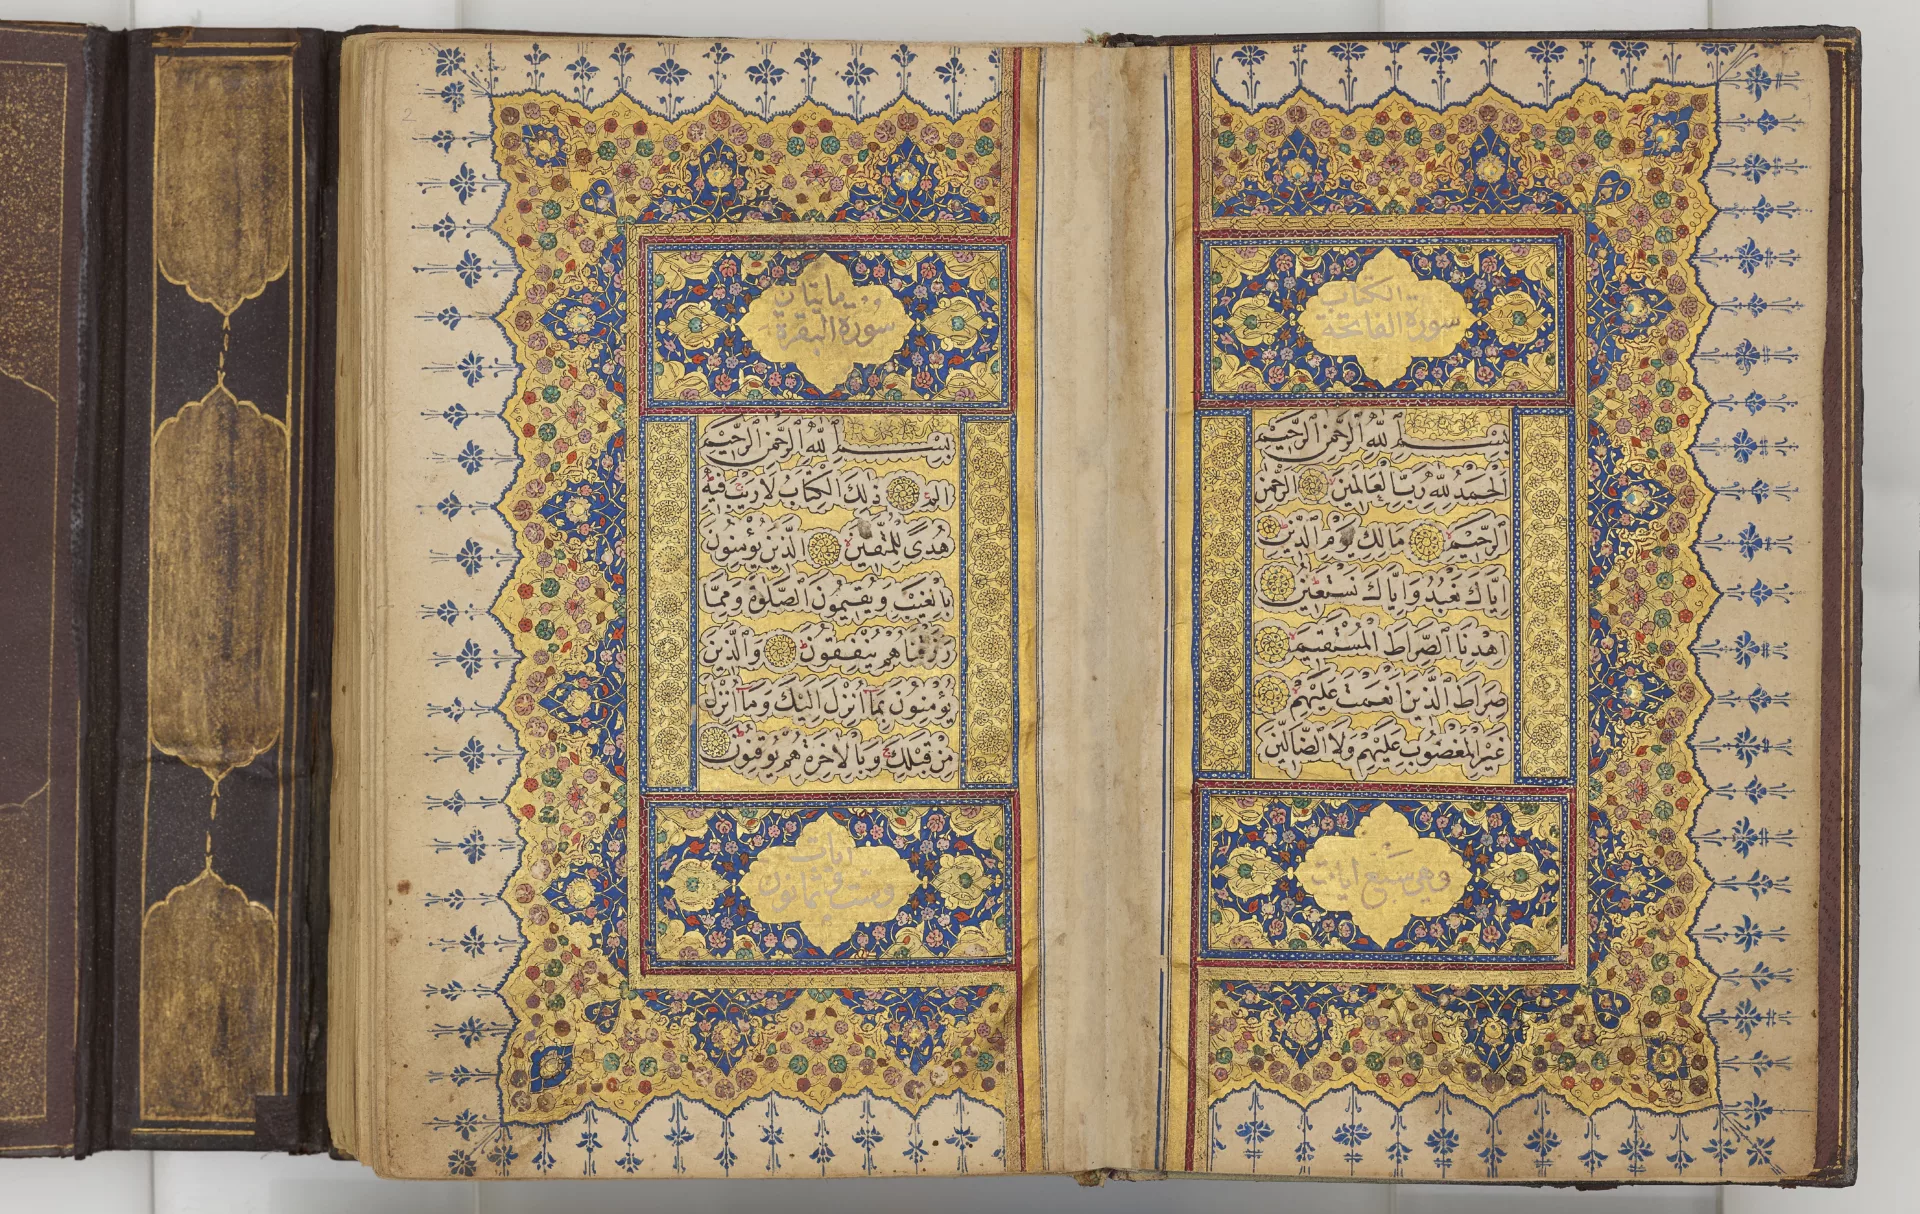 الكتاب
سورة الفاتحة
بِسْمِ اللهِ الرَّحْمٰنِ الرَّحِيمِ
اَلْحَمْدُ لِلّٰهِ رَبِّ الْعَالَمِينَ الرَّحْمٰنِ
الرَّحِيمِ مَالِكِ يَوْمِ الدِّينِ
اِيَّاكَ نَعْبُدُ وَاِيَّاكَ نَسْتَعِينُ
اِهْدِنَا الصِّرَاطَ الْمُسْتَقِيمَ
صِرَاطَ الَّذِينَ اَنْعَمْتَ عَلَيْهِمْ
غَيْرِ الْمَغْضُوبِ عَلَيْهِمْ وَلَا الضَّالِّينَ
وهي سبع ايات
2
مايتان
سورة البقرة
بِسْمِ اللهِ الرَّحْمٰنِ الرَّحِيمِ
الٓمٓ ذٰلِكَ الْكِتَابُ لَا رَيْبَ فِيهِ
هُدًى لِلْمُتَّقِينَ اَلَّذِينَ يُؤْمِنُونَ
بِالْغَيْبِ وَيُقِيمُونَ الصَّلٰوةَ وَمِمَّا
رَزَقْنَاهُمْ يُنْفِقُونَ وَالَّذِينَ
يُؤْمِنُونَ بِمَٓا اُنْزِلَ اِلَيْكَ وَمَٓا اُنْزِلَ
مِنْ قَبْلِكَ وَبِالْاٰخِرَةِ هُمْ يُوقِنُونَ
ايات
وست و ثمانون